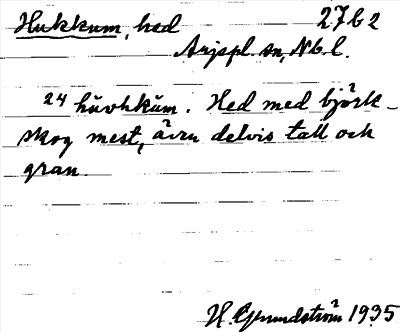 Hukkum, hed 27b2
Arjspl. sn, Nb. l.
24 hŭvhkŭm. Hed med björk-
skog mest, även delvis tall och
gran.
H. Grundström 1935